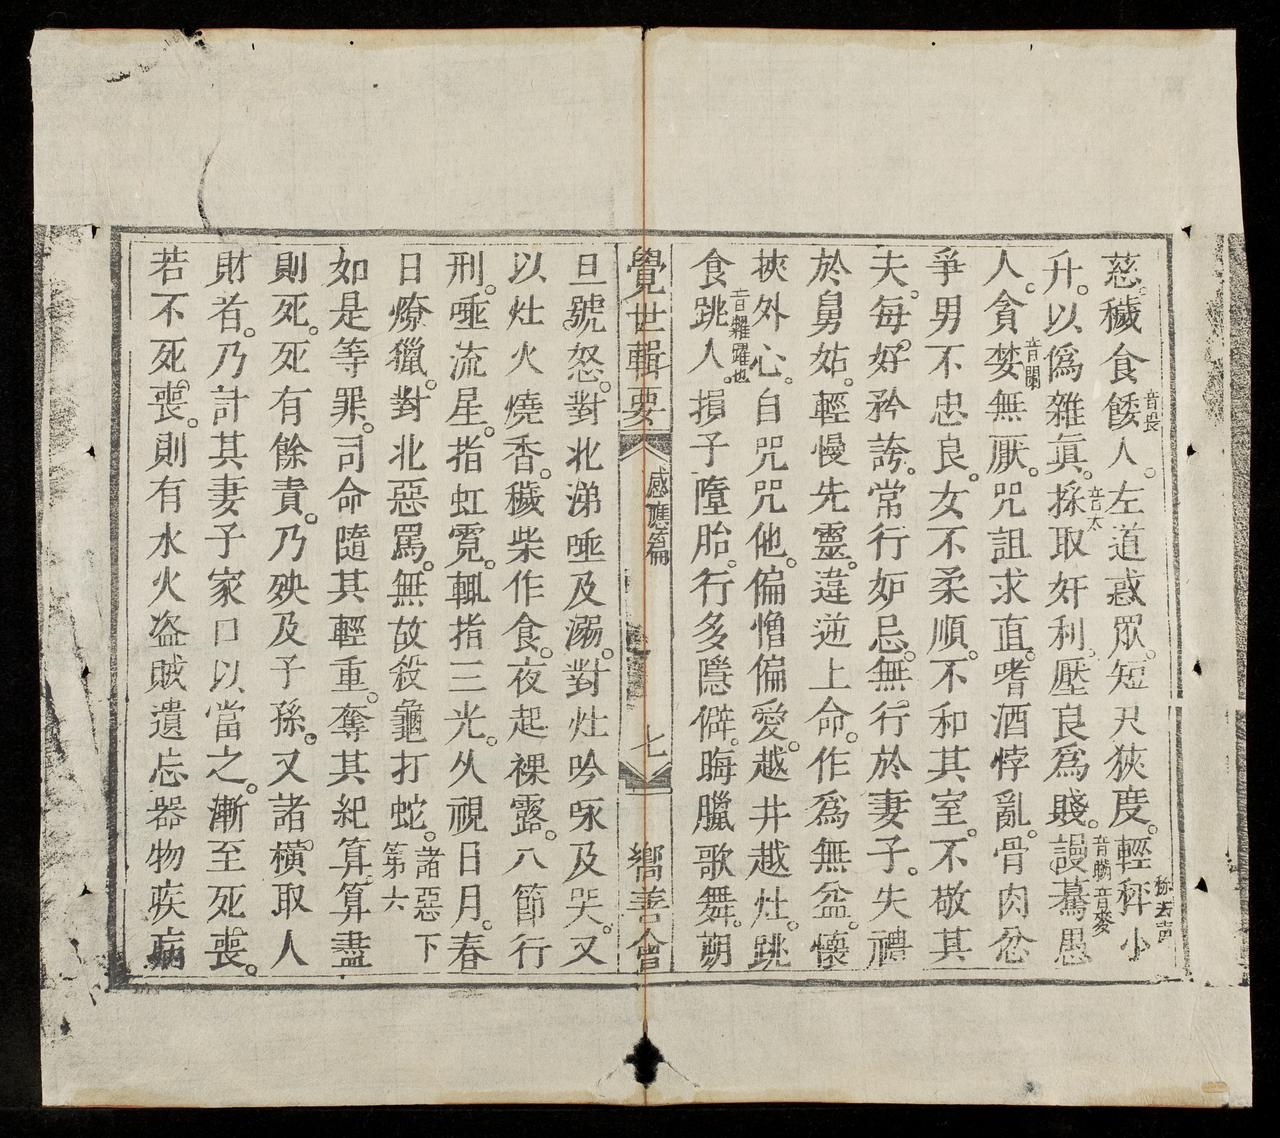 慈。穢食餧音畏人。左道惑眾。短尺狹度。輕秤小
升。以偽雜真。採取奸利。壓良為賤。謾驀愚
人。貪婪音闌無厭。咒詛求直。嗜酒悖亂。骨肉忿
爭。男不忠良。女不柔順。不和其室。不敬其
夫。每好矜誇。常行妒忌。無行於妻子。失禮
於舅姑。輕慢先靈。違逆上命。作為無益。懷
挾外心。自咒咒他。偏憎偏愛。越井越灶。跳
食跳人。損子墮胎。行多隱僻。晦臘歌舞。朔
覺世輯要 感應篇 七 嚮善會
旦號怒。對北涕唾及溺。對灶吟咏及哭。又
以灶火燒香。穢柴作食。夜起裸露。八節行
刑。唾流星。指虹霓。輒指三光。久視日月。春
日燎獵。對北惡罵。無故殺龜打蛇。諸惡下第六
如是等罪。司命隨其輕重。奪其紀算。算盡
則死。死有餘責。乃殃及子孫。又諸橫取人
財者。乃計其妻子家口以當之。漸至死喪。
若不死喪。則有水火盜賊遺忘器物疾病